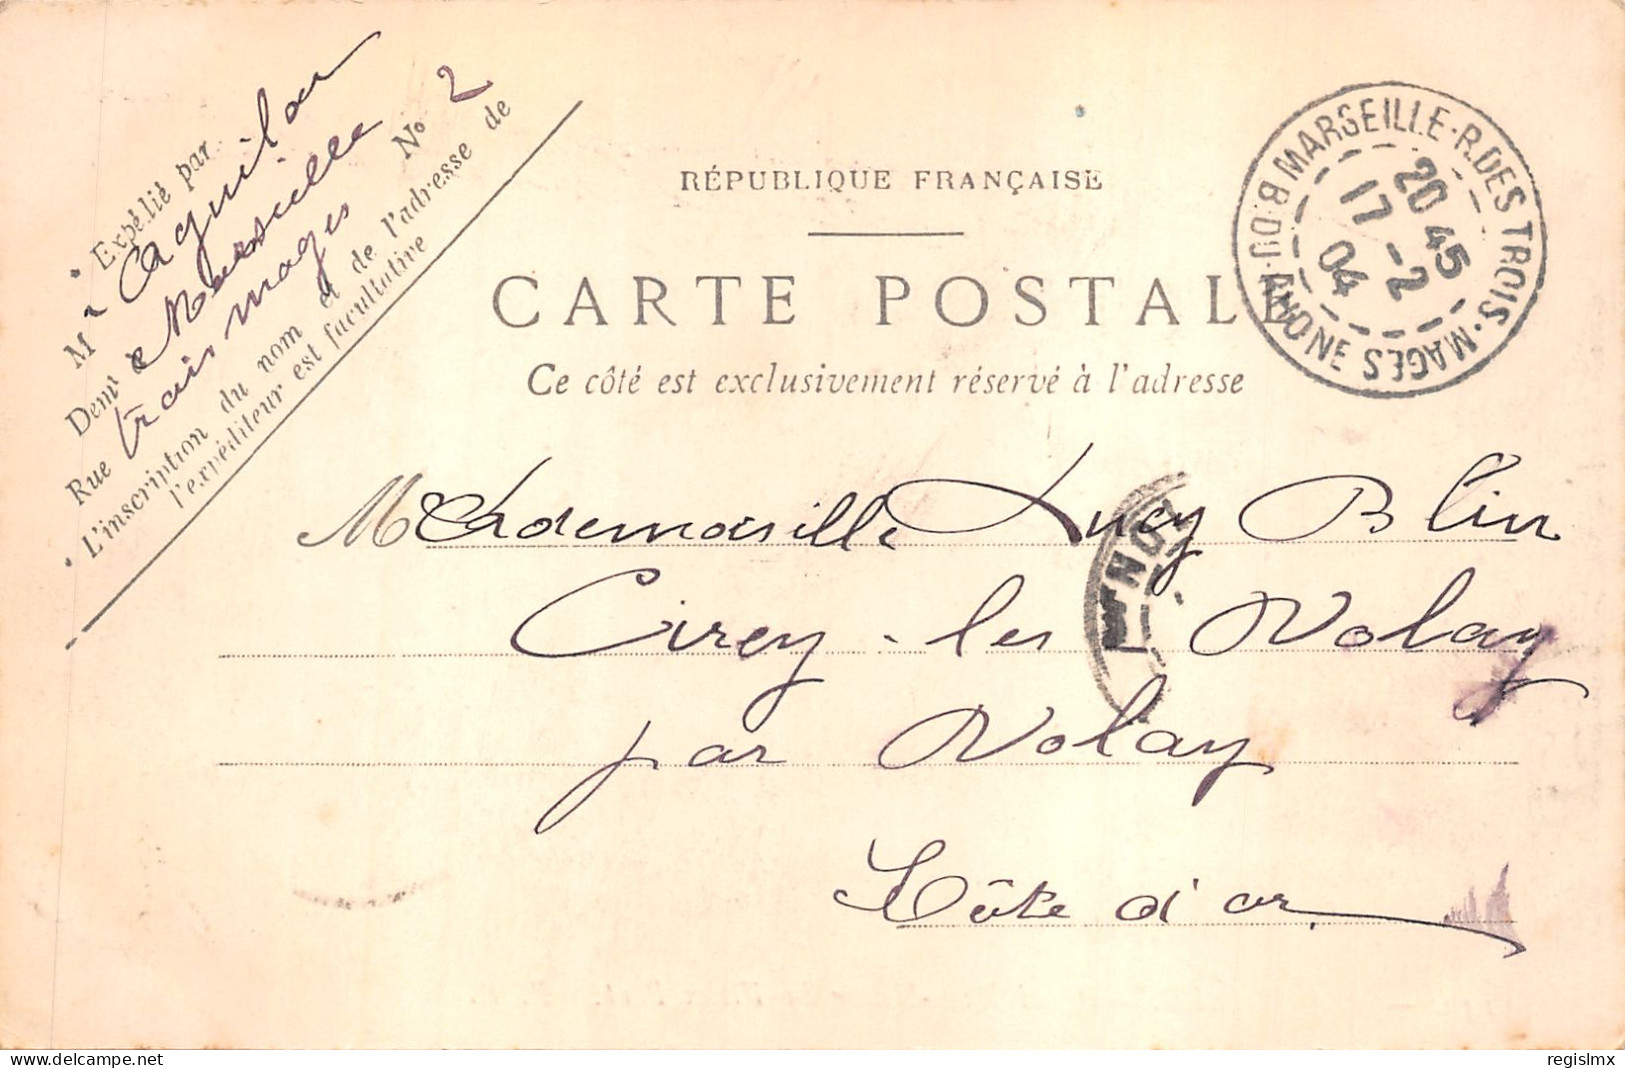 Expédié par
Mr Aguilou
Demt à Marseille
Rue trois mages No 2
L'inscription du nom et de l'adresse de
l'expéditeur est facultative
RÉPUBLIQUE FRANÇAISE
CARTE POSTALE
Ce côté est exclusivement réservé à l'adresse
MARSEILLE-R.DES TROIS-MAGES
B.DU-RHONE
20 45
17 -2
04
Mademoiselle Lucy Blin
Cirey-les Nolay
par Nolay
Côte d'or
delcampe.net
regislmx